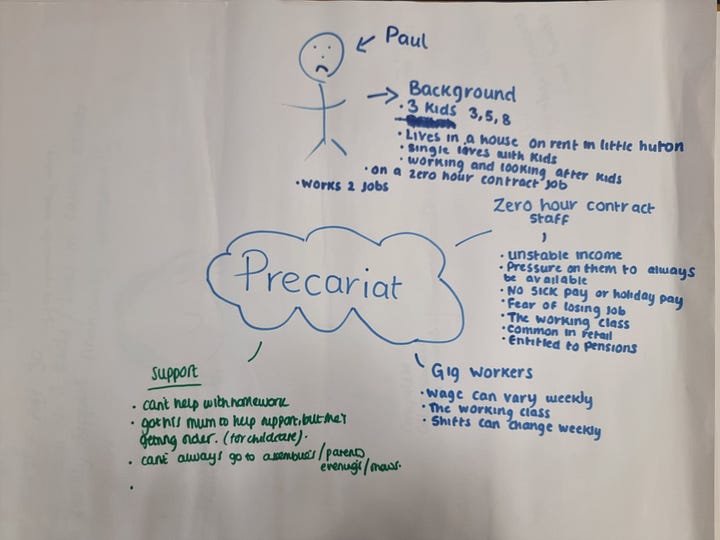 Paul
Background
• 3 Kids 3,5,8
• Lives in a house on rent in little hulton
• single lives with kids
• working and looking after kids
• on a zero hour contract job
• works 2 jobs
Zero hour contract
staff
• unstable income
• Pressure on them to always
be available
• No sick pay or holiday pay
• Fear of losing job
• The working class
• Common in retail
• Entitled to pensions
Precariat
Gig workers
• Wage can vary weekly
• The working class
• Shifts can change weekly
Support
• can't help with homework
• got his mum to help support, but they
getting older. (for childcare).
• can't always go to assemblies/parents
evenings/shows.
•